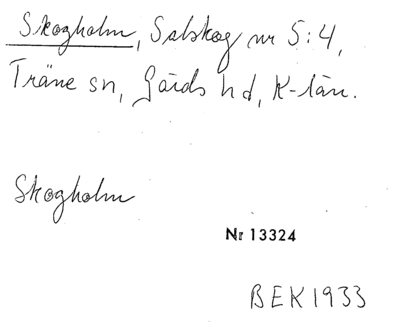 Skogholm, Salskog nr 5:4,
Träne sn, Gärds hd, K-län.
Skogholm
Nr 13324
BEK1933